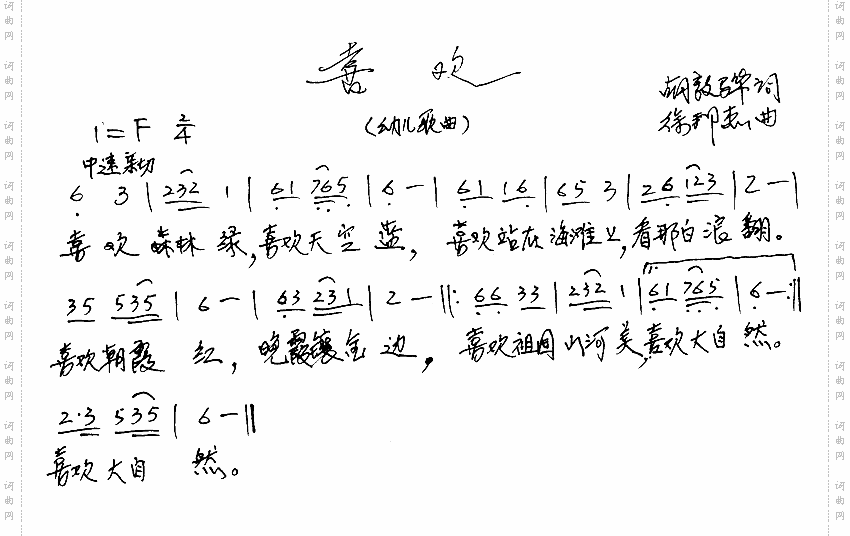 喜 欢
胡敦骅词
1=F 2/4 (幼儿歌曲) 徐邦杰曲
中速亲切
6 3 | 232 1 | 61 765 | 6 — | 61 16 | 65 3 | 26 123 | 2 — |
喜 欢 森林 绿,喜欢天空 蓝, 喜欢站在海滩上,看那白浪 翻。
35 535 | 6 — | 63 231 | 2 — ‖: 66 33 | 232 1 | 61 765 | 6 — :‖
喜欢朝霞 红, 晚霞镶金 边, 喜欢祖国山河美,喜欢大自 然。
2·3 535 | 6 — ‖
喜欢大自 然。
词曲网